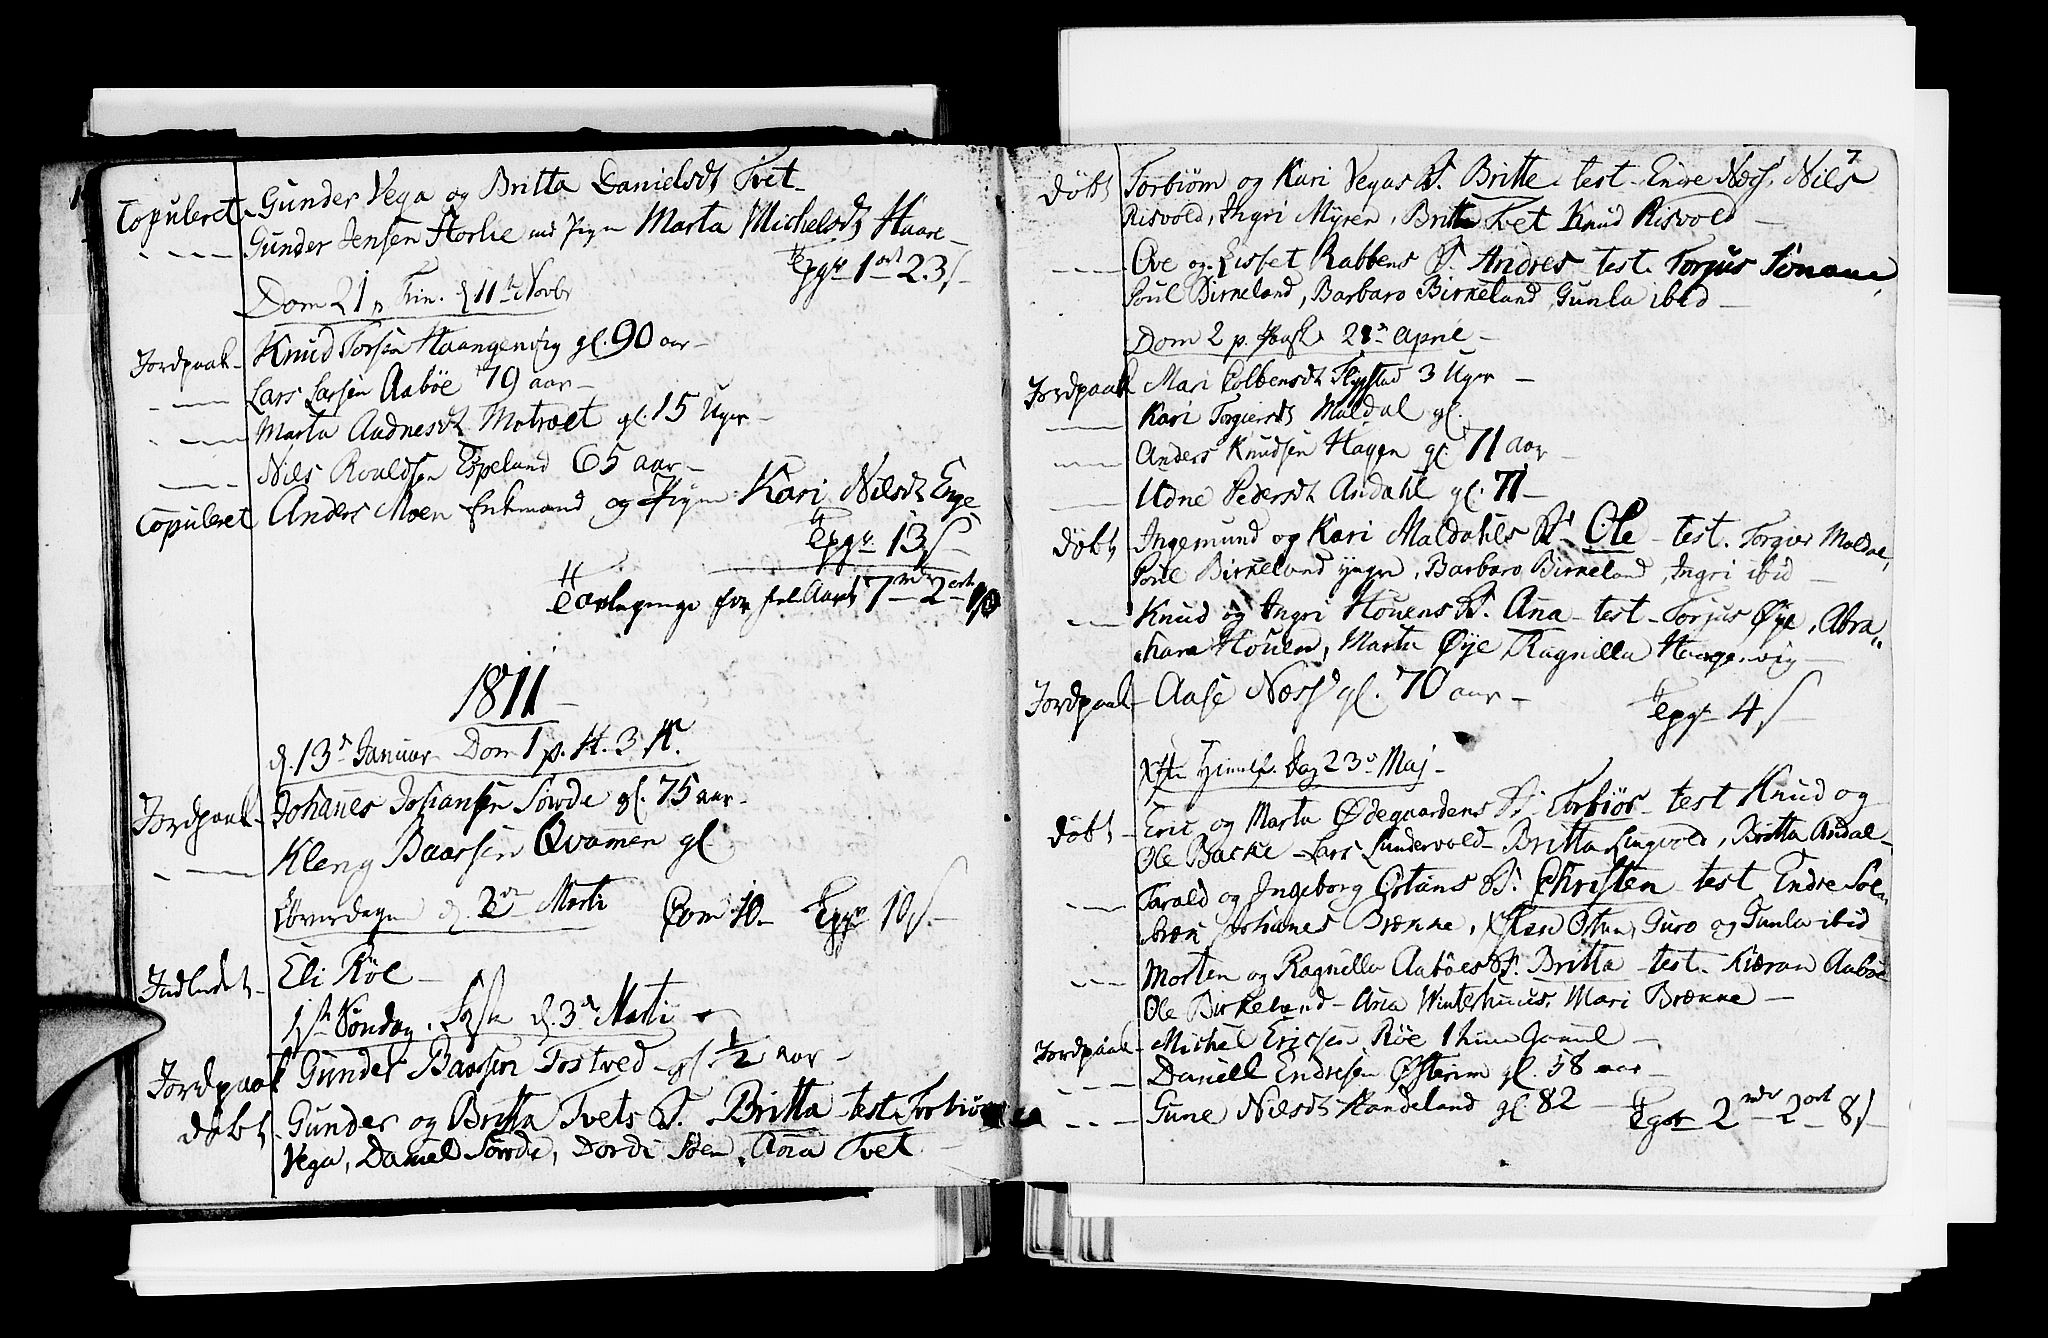 Copuleret Gunder Vega og Britta Danielsdt Tvet
Gunder Jensen Horlie Marta Michelsdt Haare
1 ort 2.3 s
Dom 21 p Trin. d 11te Novbr
Jordpaak Knud Torsen Haangenvig gl. 90 aar
Lars Larsen Aaböe 79 aar
Marta Aadnesdt gl. 15 Uger
Nils Roaldsen Espeland 65 aar
Copuleret Anders Moen Enkmand og Pigen Kari Nilsdt Enge
13 s
for hele Aaret 7 rdr 2 ort
1811
d. 13de Januar Dom 1 p. H. 3 K.
Jordpaak Johanes Johansen Sövde gl. 75 aar
Kleng Baarsen Qvamen gl
Löverdagen d. 2den Marti Com 40 10 s
Indledet Eli Röe
1ste Söndag i Faste d. 3de Marti
Jordpaak Gunder Baarsen Tostved gl. 1/2 aar
döbt Gunder og Britta Tvets B. Britta test. Torbiörn
Vega, Daniel Sövde, Dordi Söen, Ana Tvet
7
döbt Torbiörn og Kari Vegas B. Britte test. Endre Næss, Nils
Risvold, Ingri Myren, Britta Tvet Knud Risvold
Ove og Lisset Rabbens B. Andres test. Torjus
Poul Birkeland, Barbaro Birkeland, Gunla ibid
Dom 2 p. Paask 28de April
Jordpaak Mari Colbensdt 3 Uger
Kari Torgiersdt Maldal gl.
Anders Knudsen Hagen gl. 71 aar
Udne Pedersdt Andahl gl. 71
döbt Ingemund og Kari Maldahls B. Ole test. Torgier Maldal,
Poul Birkeland yngre, Barbaro Birkeland, Ingri ibid
Knud og Ingri Houens B. Ana test. Torjus Øye, Abra
ham Houen, Marta Øye, Ragnilla Haangenvig
Jordpaak Aase Næss gl. 70 aar
4 s
Xsti Himelf. Dag 23de Maj
döbt Eric og Marta Ødegaardens B. Torbiör test Knud og
Ole Bakke Lars Lundervold Britta Lingvold, Britta Andal
Tarald og Ingeborg Østuns B. Christen test Endre Söe
Johanes Brække, Østun, Guro og Gunla ibid
Morten og Ragnilla Aaböes B. Britta test. Aaböe
Ole Birkeland Ana Winterhuus, Mari Brække
Jordpaak Michel Ericsen Röe 1 Time gamel
Daniel Endresen gl. 58 aar
Gune Nilsdt Handeland gl. 82 2 rdr 2 ort 8 s